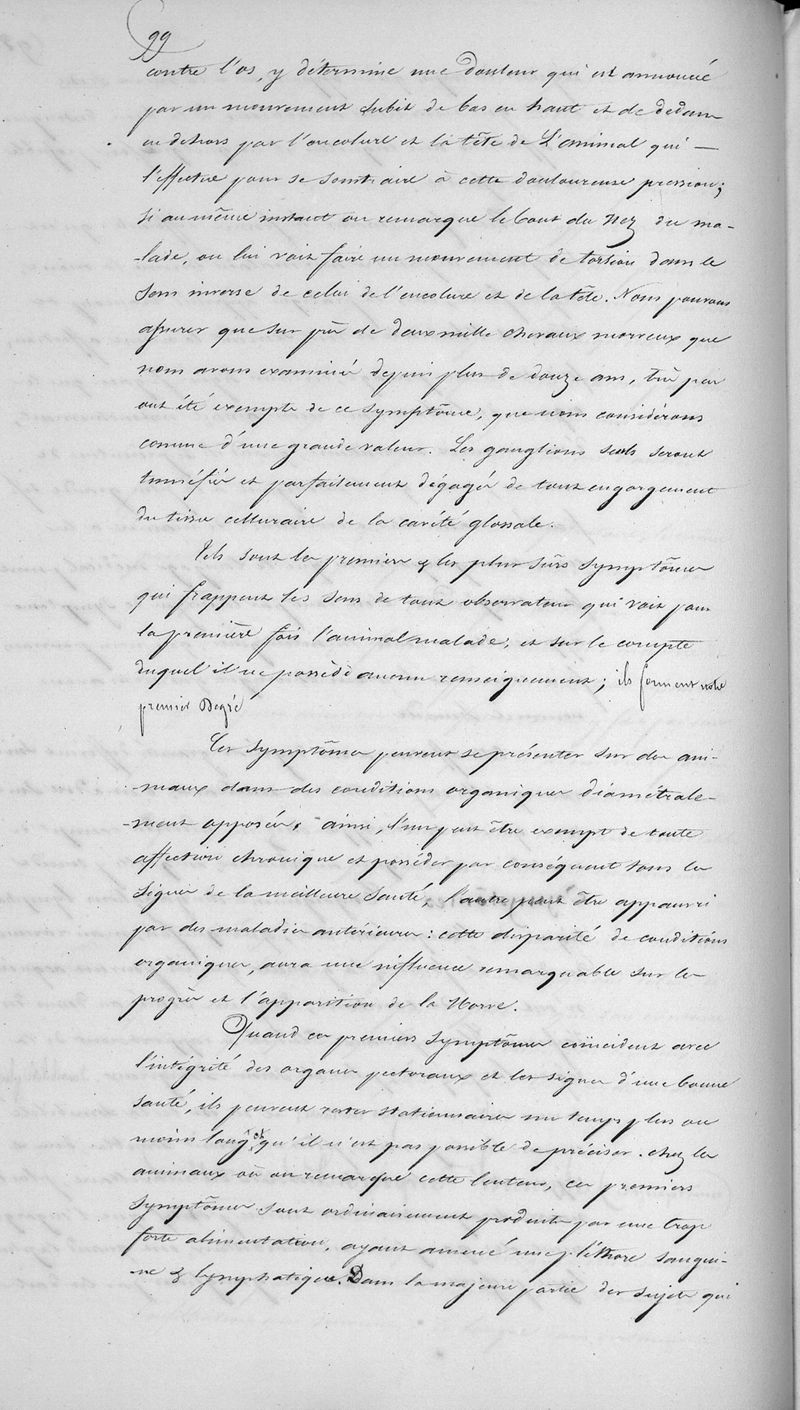 99
contre l'os, y détermine une douleur qui est annoncée
par un mouvement subit de bas en haut et de dedans
en dehors par l'encolure et la tête de L'animal qui —
l'effectue pour se soustraire à cette douloureuse pression;
si au même instant on remarque le bout du Nez du ma-
-lade, on lui voit faire un mouvement de torsion dans le
sens inverse de celui de l'encolure et de la tête. Nous pouvons
assurer que sur près de deux mille chevaux morveux que
nous avons examinés depuis plus de douze ans, très peu
ont été exempts de ce symptôme, que nous considérons
comme d'une grande valeur. Les ganglions seuls seront
tuméfiés et parfaitement dégagés de tout engorgement
du tissu cellulaire de la cavité glossale.
Tels sont les premiers & les plus sûrs symptômes
qui frappent les sens de tout observateur qui voit pour
la première fois l'animal malade, et sur le compte
duquel il ne possède aucun renseignement; ils forment notre
premier Degré
Ces symptômes peuvent se présenter sur des ani-
-maux dans des conditions organiques diamétrale-
-ment opposées, ainsi, l'un peut être exempt de toute
affection chronique et posséder par conséquent tous les
signes de la meilleure santé, l'autre peut être appauvri
par des maladies antérieures: cette disparité de conditions
organiques, aura une influence remarquable sur les
progrès et l'apparition de la Morve.
Quand ces premiers symptômes coïncident avec
l'intégrité des organes pectoraux et les signes d'une bonne
santé, ils peuvent rester stationnaires un temps plus ou
moins long et qu'il n'est pas possible de préciser. chez les
animaux où on remarque cette lenteur, ces premiers
symptômes sont ordinairement produits par une trop
forte alimentation, ayant amené une pléthore sangui-
-ne & lymphatique. Dans la majeure partie des sujets qui